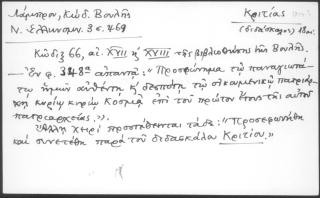 Λάμπρου, Κώδ. Βουλῆς
Ν. Ἑλληνομν. 3 σ. 469
Κριτίας
(διδάσκαλος) 18 αι.
Κῶδιξ 66, αἰ. XVII ἢ XVIII τῆς βιβλιοθήκης τῆς Βουλῆς.
— Ἐν φ. 348α ἀπαντᾷ: "Προσφώνημα τῷ παναγιωτά-
τῳ ἡμῶν αὐθέντῃ κ' δεσπότῃ τῷ οἰκουμενικῷ πατριάρ-
χῃ κυρίῳ κυρίῳ Κοσμᾷ ἐπὶ τοῦ πρώτου ἔτους τῆς αὐτοῦ
πατριαρχείας.").
Ἄλλῃ χειρὶ προστίθενται τάδε: "Προσεφωνήθη
καὶ συνετέθη παρὰ τοῦ διδασκάλου Κριτίου."